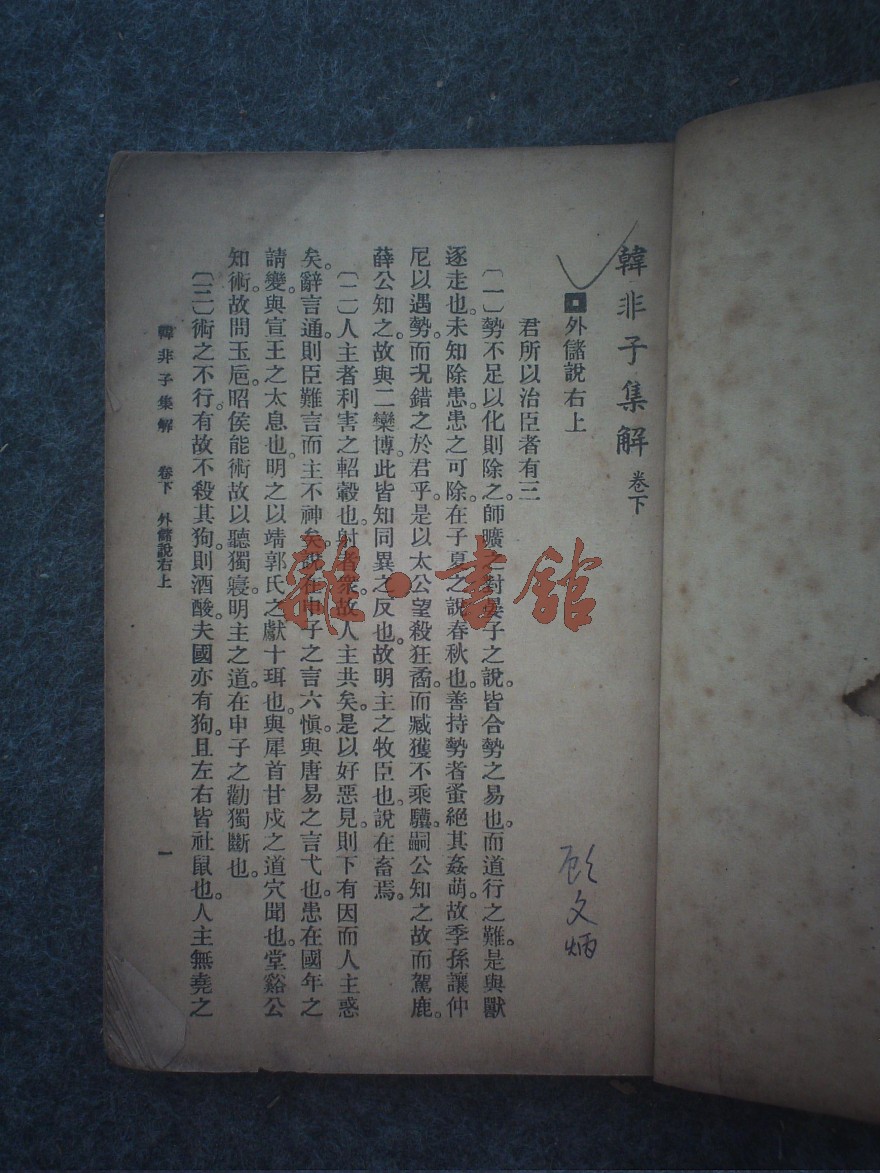 韓非子集解 卷下
外儲說右上
君所以治臣者有三
〔一〕勢不足以化則除之。師曠之對晏子之說。皆合勢之易也。而道行之難。是與獸
逐走也。未知除患。患之可除。在子夏之說春秋也。善持勢者蚤絕其姦萌。故季孫讓仲
尼以遇勢。而況錯之於君乎。是以太公望殺狂矞。而臧獲不乘驥。嗣公知之。故而駕鹿。
薛公知之。故與二欒博。此皆知同異之反也。故明主之牧臣也。說在畜焉。
〔二〕人主者利害之軺轂也。射者衆。故人主共矣。是以好惡見。則下有因而人主惑
矣。辭言通。則臣難言而主不神矣。說在申子之言六愼。與唐易之言弋也。患在國年之
請變。與宣王之太息也。明之以靖郭氏之獻十珥也。與犀首甘戍之道穴聞也。堂谿公
知術。故問玉巵。昭侯能術。故以聽獨寢。明主之道。在申子之勸獨斷也。
〔三〕術之不行。有故。不殺其狗。則酒酸。夫國亦有狗。且左右皆社鼠也。人主無堯之
韓非子集解 卷下 外儲說右上 一
顾文炳
雜·書館